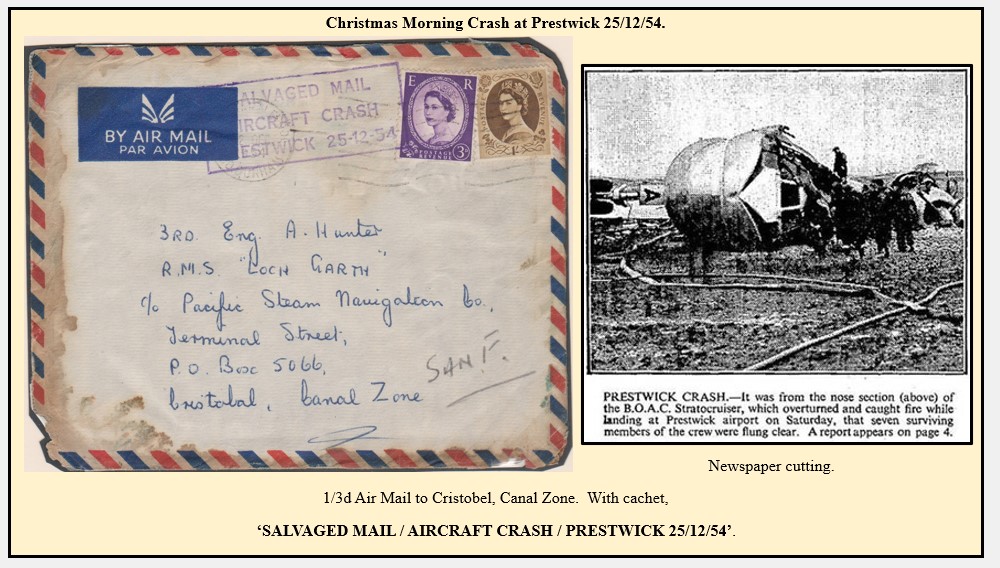 Christmas Morning Crash at Prestwick 25/12/54.
SALVAGED MAIL
AIRCRAFT CRASH
PRESTWICK 25-12-54
BY AIR MAIL
PAR AVION
E R
POSTAGE
REVENUE
3D
1/-
3RD. Eng. A. Hunter
R.M.S. "LOCH GARTH"
c/o Pacific Steam Navigation Co.,
Terminal Street,
P.O. Box 5066,
Cristobal, Canal Zone
SAN F.
PRESTWICK CRASH.—It was from the nose section (above) of
the B.O.A.C. Stratocruiser, which overturned and caught fire while
landing at Prestwick airport on Saturday, that seven surviving
members of the crew were flung clear. A report appears on page 4.
Newspaper cutting.
1/3d Air Mail to Cristobel, Canal Zone. With cachet,
‘SALVAGED MAIL / AIRCRAFT CRASH / PRESTWICK 25/12/54’.